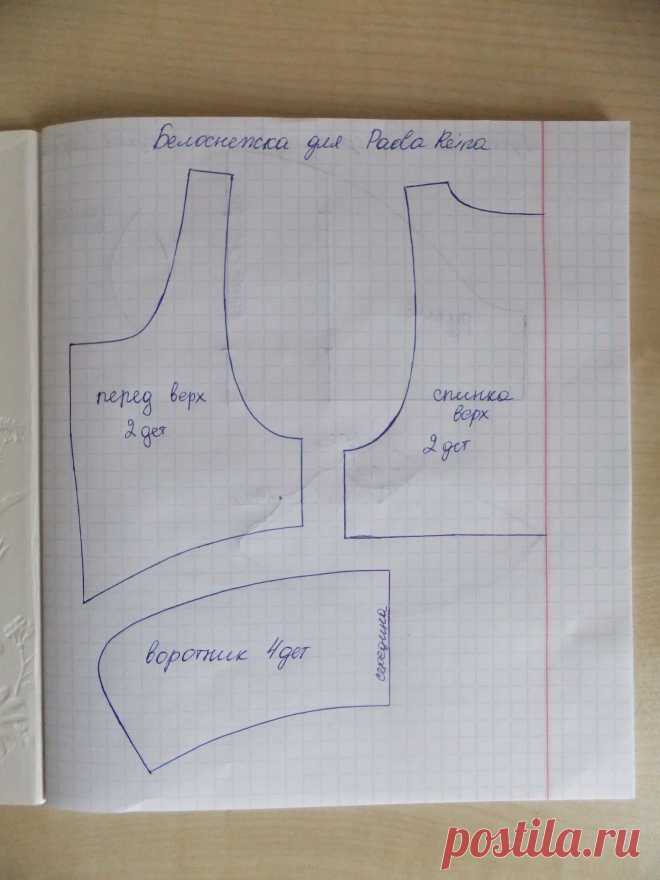 Белоснежка для Paola Reina
перед верх
2 дет
спинка
верх
2 дет
воротник 4 дет
середина
postila.ru